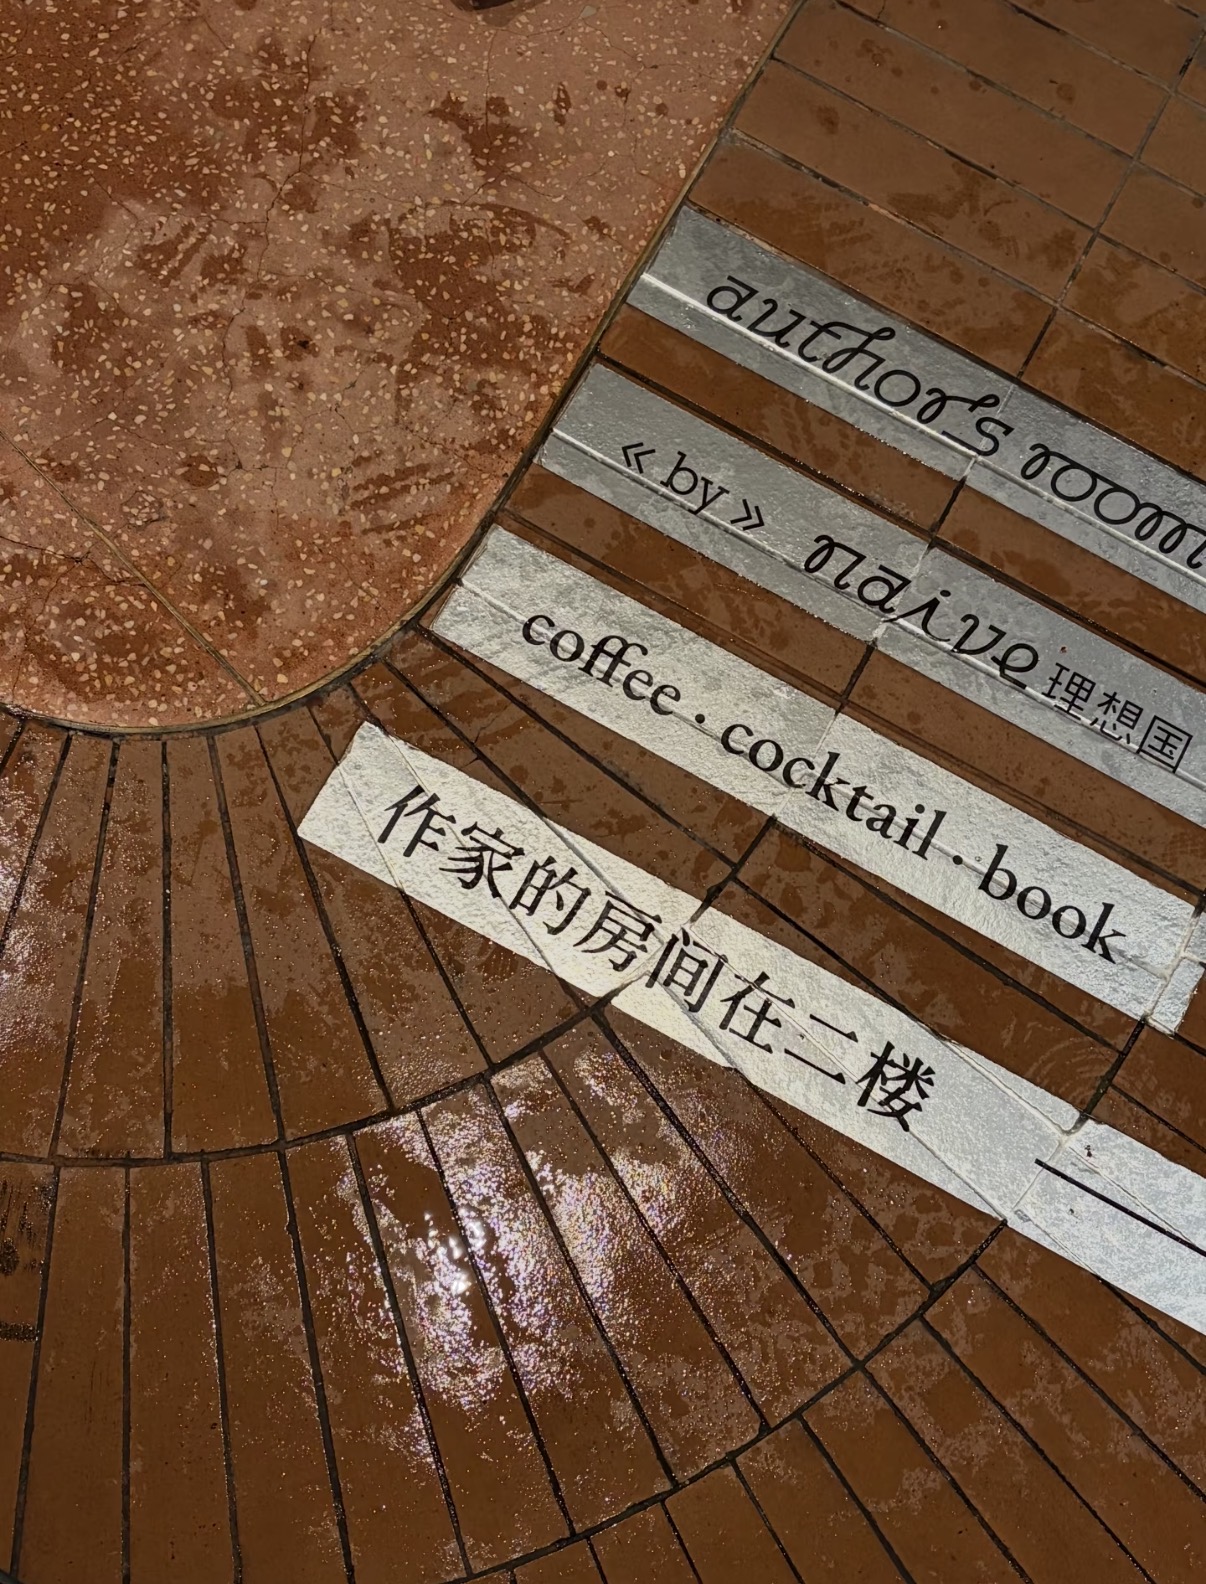 author's room
« by » naive 理想国
coffee · cocktail · book
作家的房间在二楼